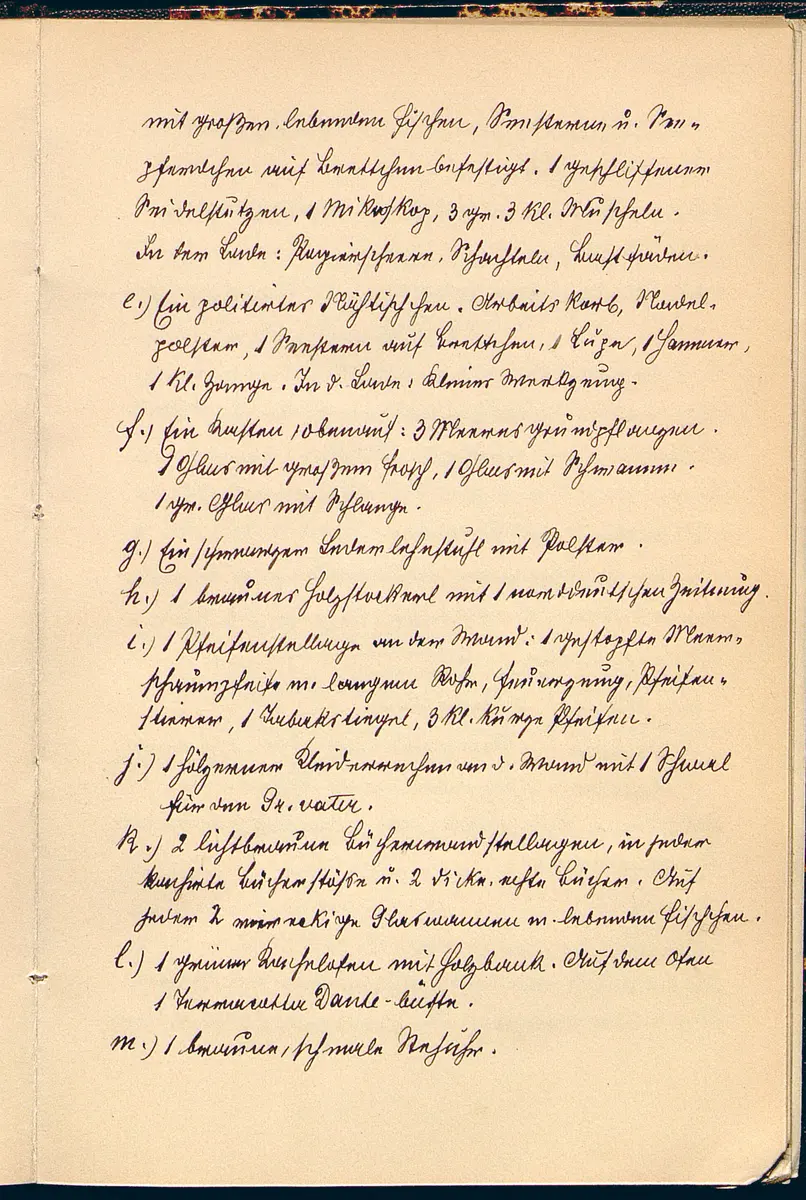 mit großen lebenden Fischen, Seesterne u. See-
pferdchen auf Brettchen befestigt. 1 geschliffener
Seidelstutzen, 1 Mikroskop, 3 gr. 3 kl. Muscheln.
In der Lade: Papierscheere, Schachteln, Bastfäden.
e.) Ein politirtes Nähtischchen. Arbeitskorb, Nadel-
polster, 1 Seestern auf Brettchen, 1 Lupe, 1 Hammer,
1 kl. Zange. In d. Lade: kleines Werkzeug.
f.) Ein Kasten, obenauf: 3 Meeresgrundpflanzen.
1 Glas mit großem Frosch, 1 Glas mit Schwamm.
1 gr. Glas mit Schlange.
g.) Ein schwarzer Lederlehnstuhl mit Polster.
h.) 1 braunes Holzstockerl mit 1 norddeutschen Zeitung.
i.) 1 Pfeifenstellage an der Wand: 1 gestopfte Meer-
schaumpfeife m. langem Rohr, Feuerzeug, Pfeifen-
stierer, 1 Tabakstiegel, 3 kl. kurze Pfeifen.
j.) 1 hölzerner Kleiderrechen an d. Wand mit 1 Schawl
für den Gr. vater.
k.) 2 lichtbraune Bücherwandstellagen, in jeder
kachirte Bücherstöße u. 2 dicke, echte Bücher. Auf
jeder 2 viereckige Glaswannen m. lebenden Fischchen.
l.) 1 grüner Kachelofen mit Holzbank. Auf dem Ofen
1 Terracotta Dante-büste.
m.) 1 braune, schmale Stehuhr.